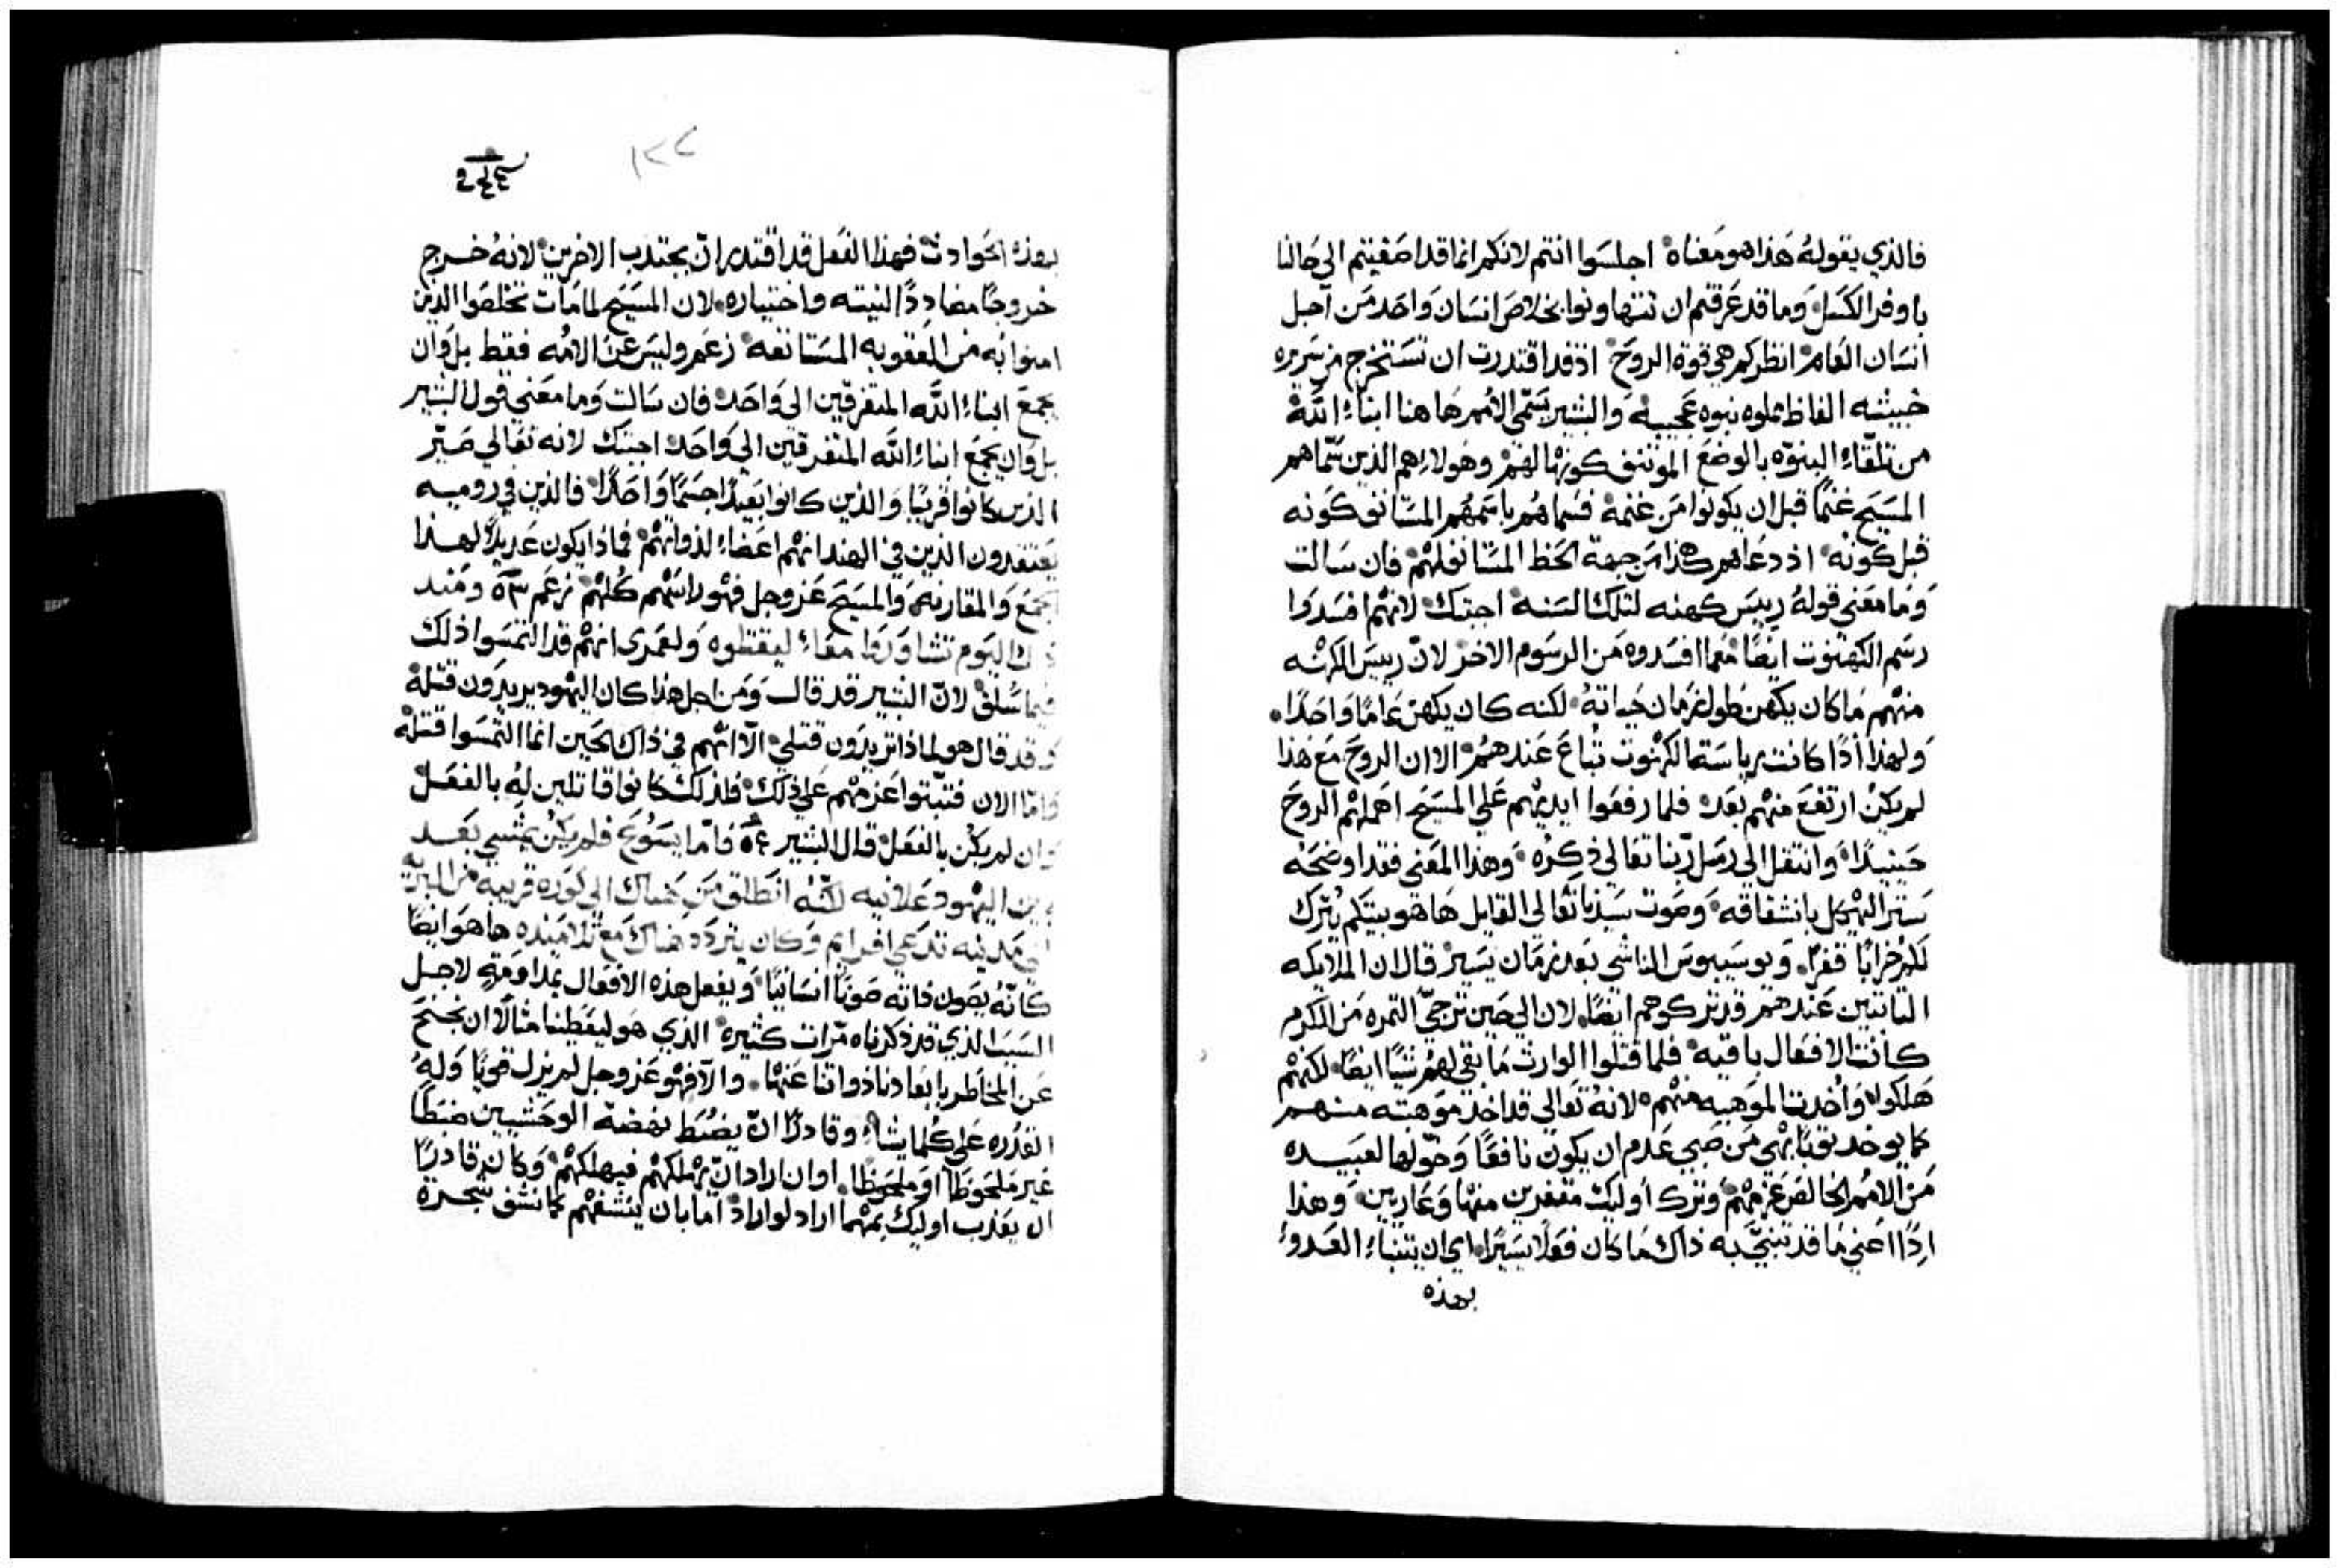 فالذي يقوله هذا هو معناه اجلسوا انتم لانكم انما قد اصغيتم الى حالنا
باوفر الكسل وما قد عرفتم ان تتهاونوا بخلاص انسان واحد من آجل
انسان العام انظر كم هي قوة الروح اذ قد اقتدرت ان تستخرج من سريره
خبيثه الفاظ مملوه نبوه عجيبه والبشير يسمى الامم هاهنا ابناء الله
من تلقاء البنوه بالوضع الموتنف كونها لهم وهولاء هم الذين سماهم
المسيح غنمًا قبل ان يكونوا من غنمه فسماهم باسمهم المستانف كونه
قبل كونه اذ دعاهم هكذا من جهة الحظ المستانف لهم فان سالت
وما معنى قوله رييس كهنه لتلك السنه اجبتك لانهم افسدوا
رسم الكهنوت ايضًا مع ما افسدوه من الرسوم الاخر لان رييس الكهنه
منهم ما كان يكهن طول زمان حياته لكنه كان يكهن عامًا واحدًا
ولهذا اذًا كانت رياستا الكهنوت تباع عندهم الا ان الروح مع هذا
لم يكن ارتفع منهم بعد فلما رفعوا ايديهم علي المسيح اهملهم الروح
حينيذًا وانتقل الى رسل ربنا تعالى ذكره وهذا المعنى فقد اوضحه
ستر الهيكل بانشقاقه وصوت سيدنا تعالى القايل ها هو بيتكم يترك
لكم خرابًا قفرًا ويوسيبوس الناشي بعد زمان يسير قال ان الملايكه
الثابتين عندهم قد تركوهم ايضًا لان الى حين ترجي الثمره من الكرم
كانت الافعال باقيه فلما قتلوا الوارث ما بقى لهم شيًا ايضًا لكنهم
هلكوا واخذت الموهبه منهم لانه تعالى قد اخذ موهبته منهم
كما يوخذ ثوبًا بهي من صبي عدم ان يكون نافعًا وخولها لعبيده
من الامم الخالص عزمهم وترك اوليك مقفرين منها وعاريين وهذا
اذًا اعني ما قد تنبي به ذاك ما كان فعلًا يسيرًا اي ان يتنباء العدو
بهذه
١٢٧
بهذه الحوادث فهذا الفعل قد اقتدر ان يجتذب الاخرين لانه خرج
خروجًا مضاددًا لنيته واختياره لان المسيح لما مات تخلصوا الذين
امنوا به من العقوبه المستانفه زعم وليس عن الامه فقط بل وان
يجمع ابناء الله المتفرقين الى واحد فان سالت وما معنى قول البشير
بل وان يجمع ابناء الله المتفرقين الي واحد اجبتك لانه تعالي صير
الذين كانوا قريبًا والذين كانوا بعيدًا جسمًا واحدًا فالذين في روميه
يعتقدون الذين في الهند انهم اعضاء لذواتهم فماذا يكون عديلًا لهذا
الجمع والمقارنه والمسيح عز وجل فهو راسهم كلهم زعم ٥٣ ومنذ
ذلك اليوم تشاوروا معاء ليقتلوه ولعمري انهم قد التمسوا ذلك
فيما سلف لان البشير قد قال ومن اجل هذا كان اليهود يريدون قتله
وقد قال هو لماذا تريدون قتلي الا انهم في ذاك الحين انما التمسوا قتله
واما الان فثبتوا عزمهم علي ذلك فلذلك كانوا قاتلين له بالفعل
وان لم يكن بالفعل قال البشير ٥٤ فاما يسوع فلم يكن يمشي بعد
بين اليهود علانيه لكنه انطلق من هناك الى كوره قريبه من البريه
الى مدينه تدعي افرايم وكان يتردد هناك مع تلاميذه ها هو ايضًا
كانه يصون ذاته صونًا انسانيًا ويفعل هذه الافعال بمداومةٍ لاجل
السبب الذي قد ذكرناه مرات كثيره الذي هو ليعطينا مثالًا ان نجنح
عن المخاطر بابعادنا ذواتنا عنها والا فهو عز وجل لم يزل قويًا وله
القدره علي كلما يشاء وقادرًا ان يضبط نهضة الوحشيين ضبطًا
غير ملحوظًا او ملحوظًا او ان اراد ان يهلكهم فيهلكهم وكان قادرًا
ان يعذب اوليك بمهما اراد لو اراد اما بان ينشفهم كما نشف شجرة